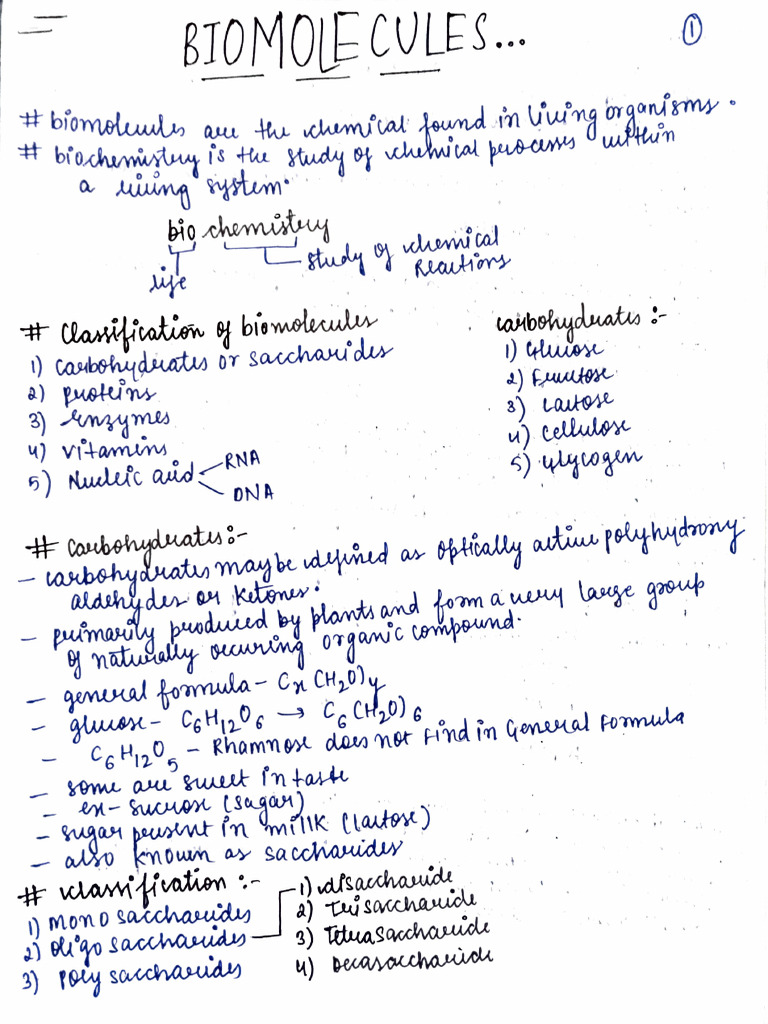 BIOMOLECULES...
1
# biomolecules are the chemical found in living organisms.
# biochemistry is the study of chemical processes within
a living system.
bio chemistry
study of chemical
Reactions
life
# Classification of biomolecules
1) carbohydrates or saccharides
2) proteins
3) enzymes
4) vitamins
5) Nucleic acid
RNA
DNA
carbohydrates :-
1) Glucose
2) Fructose
3) Lactose
4) Cellulose
5) Glycogen
# Carbohydrates:-
- carbohydrates may be defined as optically active polyhydroxy
aldehydes or ketones.
- primarily produced by plants and form a very large group
of naturally occuring organic compound.
- general formula - Cx(H2O)y
- glucose - C6H12O6 → C6(H2O)6
- C6H12O5 - Rhamnose does not find in General Formula
- some are sweet in taste
- ex - sucrose (sagar)
- sugar present in millk (lactose)
- also known as saccharides
# classification :-
1) mono saccharides
2) oligo saccharides
3) Poly saccharides
1) disaccharide
2) Trisaccharide
3) Tetrasaccharide
4) Decasaccharide